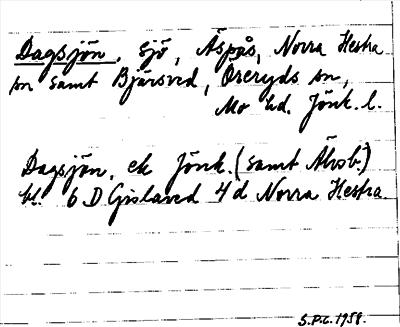 Dagsjön, sjö, Äspås, Norra Hestra
sn samt Bjärsved, Öreryds sn,
Mo hd. Jönk. l.
Dagsjön, ek Jönk. (samt Älvsb.)
bl. 6 D Gislaved 4 d Norra Hestra.
S.P.C. 1958.